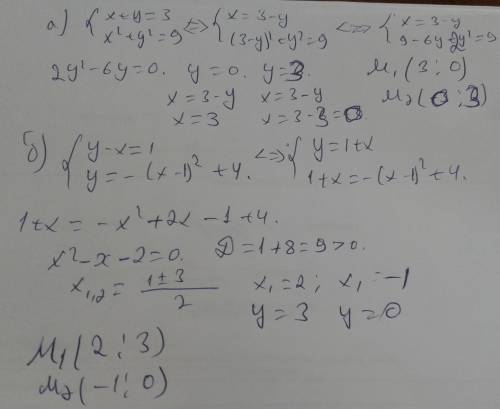 а) { x+y=3 <=> { x=3-y <=> { x=3-y
x²+y²=9 (3-y)²+y²=9 9-6y+2y²=9
2y²-6y=0. y=0. y=3. M₁(3;0)
x=3-y x=3-y M₂(0;3)
x=3 x=3-3=0
б) { y-x=1 <=> { y=1+x
y=-(x-1)²+4. 1+x=-(x-1)²+4.
1+x=-x²+2x-1+4.
x²-x-2=0. D=1+8=9>0.
x₁,₂=(1±3)/2 x₁=2; x₁=-1
y=3 y=0
M₁(2;3)
M₂(-1;0)